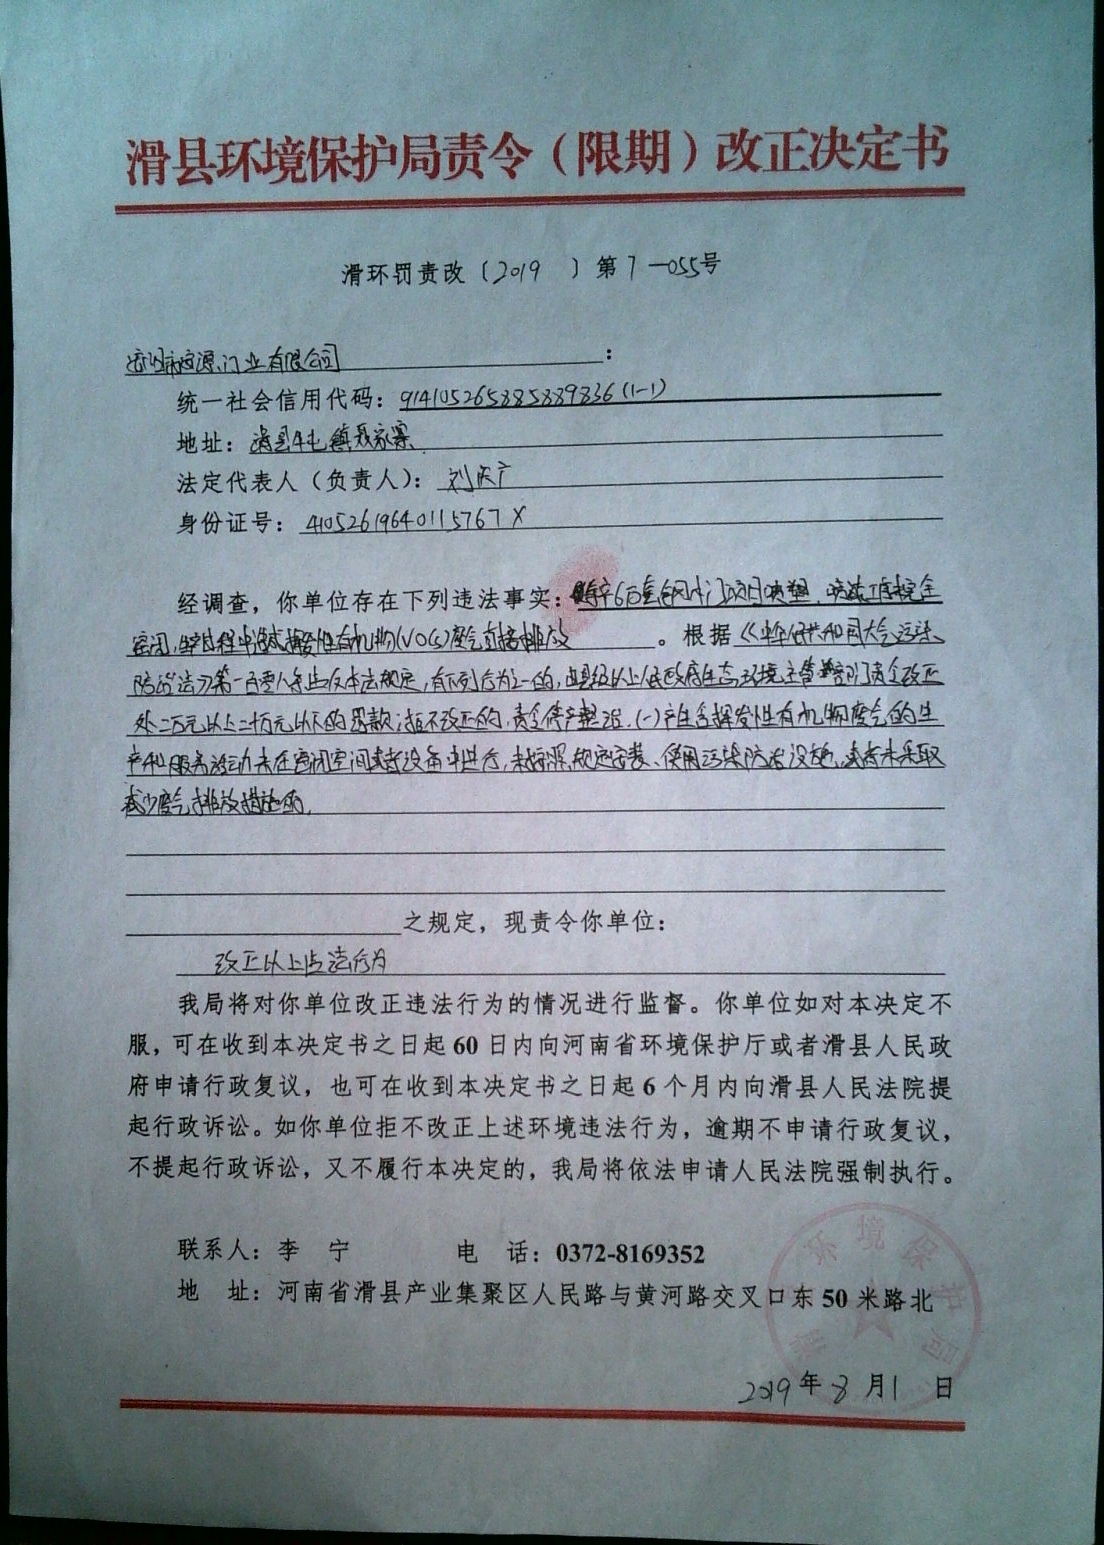 滑县环境保护局责令（限期）改正决定书
滑环罚责改〔2019 〕第7-055号
门业有限公司：
统一社会信用代码：914105265885889836（1-1）
地址：滑县牛屯镇聂家寨
法定代表人（负责人）：刘庆广
身份证号：41052619640115767X
经调查，你单位存在下列违法事实：年6万套钢木门项目喷塑、工序
密闭，过程中挥发性有机物(VOCs)废气直接排放。根据《中华人民共和国大气污染
防治法》第一百零八条违反本法规定，有下列行为之一的，由县级以上人民政府生态环境主管部门责令改正
处二万元以上二十万元以下的罚款；拒不改正的，责令停产整治：（一）产生含挥发性有机物废气的生
产和服务活动未在密闭空间或者设备中进行，未按照规定安装、使用污染防治设施，或者未采取
减少废气排放措施的，
之规定，现责令你单位：
改正以上违法行为
我局将对你单位改正违法行为的情况进行监督。你单位如对本决定不
服，可在收到本决定书之日起60日内向河南省环境保护厅或者滑县人民政
府申请行政复议，也可在收到本决定书之日起6个月内向滑县人民法院提
起行政诉讼。如你单位拒不改正上述环境违法行为，逾期不申请行政复议，
不提起行政诉讼，又不履行本决定的，我局将依法申请人民法院强制执行。
联系人：李 宁 电 话：0372-8169352
地 址：河南省滑县产业集聚区人民路与黄河路交叉口东50米路北
滑县环境保护局
2019年8月1日